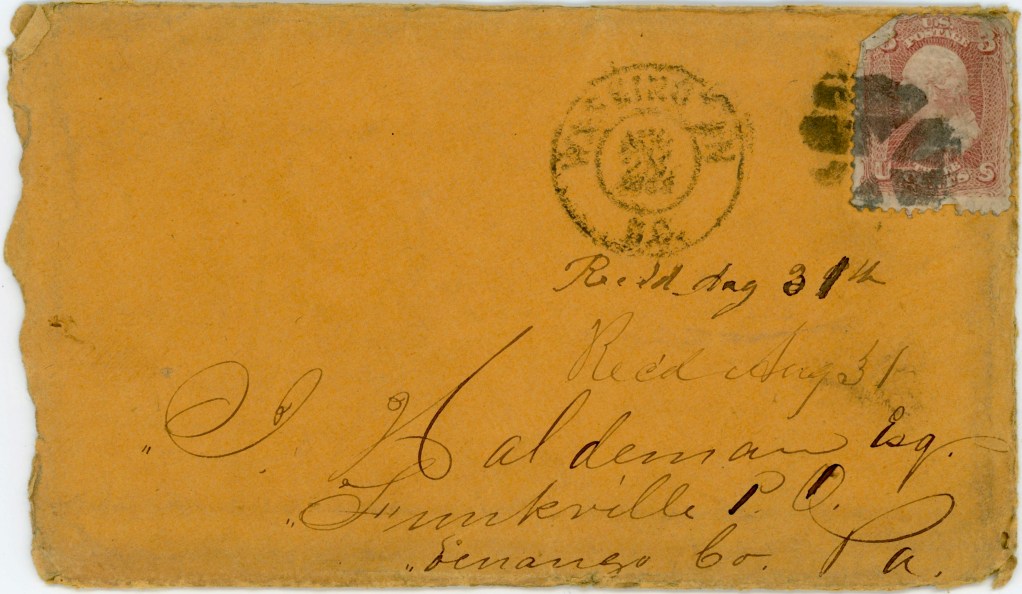 U.S.
POSTAGE
3 3
WASHINGTON
D.C.
U S
Rec'd Aug 31th
Rec'd Aug 31
" J. Haldeman Esq.
" Funkville P. O.
" Venango Co. Pa.